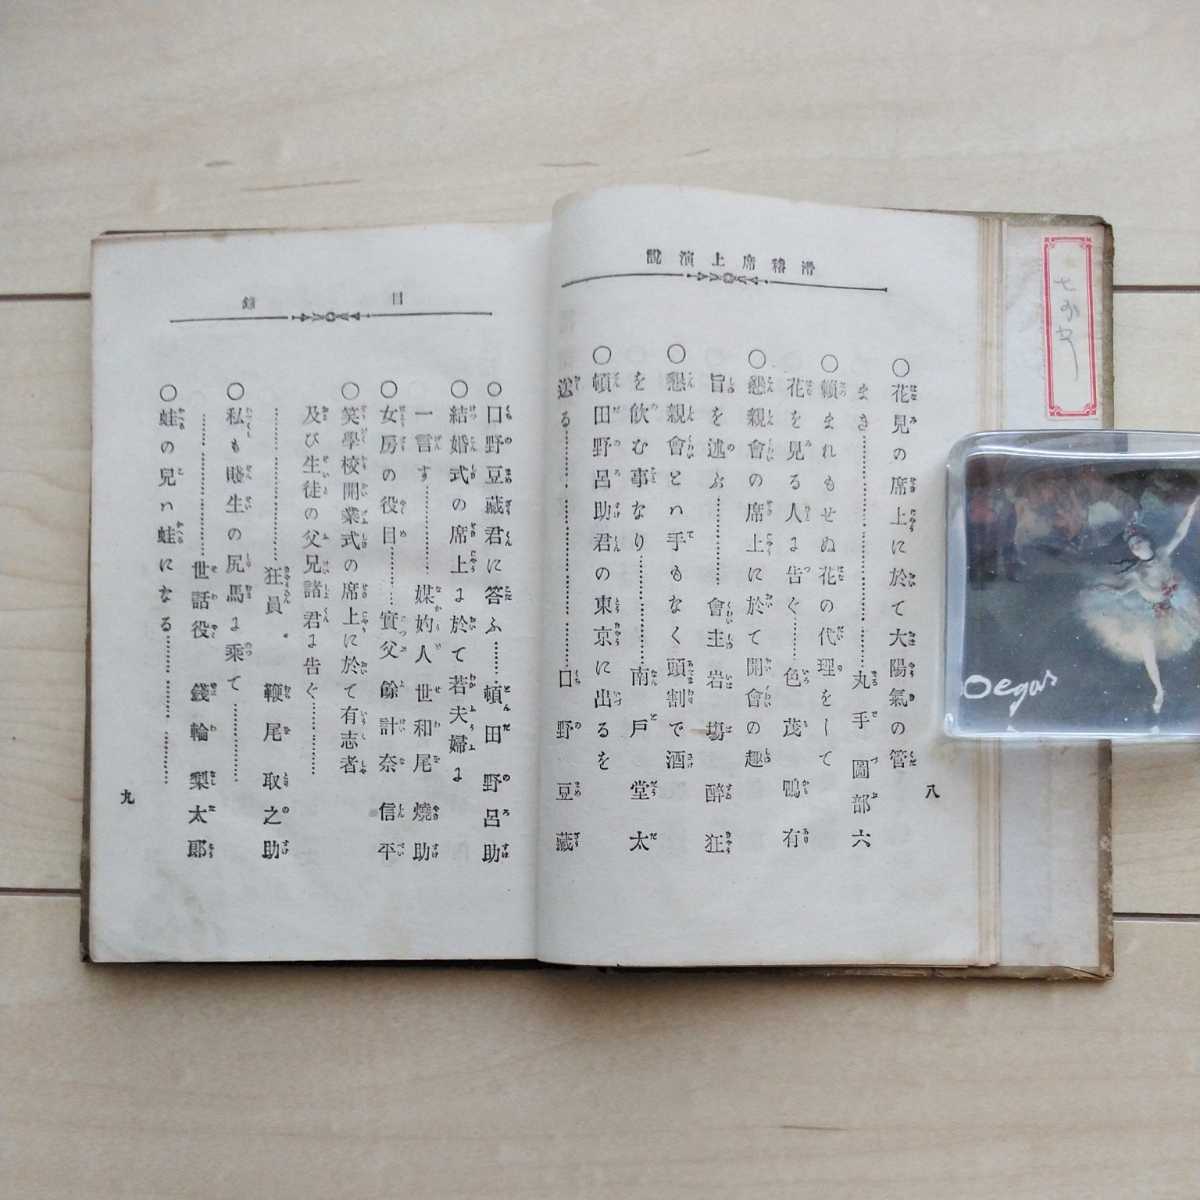 滑稽席上演說
○花見の席上に於て大陽氣の管
まき…………丸手圖部六
○賴まれもせぬ花の代理をして
花を見る人に告ぐ……色茂鴨有
○懇親會の席上に於て開會の趣
旨を述ぶ…………會主岩塲醉狂
○懇親會とハ手もなく頭割で酒
を飮む事なり…………南戸堂太
○頓田野呂助君の東京に出るを
送る…………口野豆藏
八
目錄
○口野豆藏君に答ふ……頓田野呂助
○結婚式の席上に於て若夫婦に
一言す…………媒妁人世和尾燒助
○女房の役目……實父餘計奈信平
○笑學校開業式の席上に於て有志者
及び生徒の父兄諸君に告ぐ…………
狂員 鞭尾取之助
○私も賤生の尻馬に乘て…………
…………世話役錢輪梨太郎
○蛙の兒ハ蛙になる…………
九
Degas